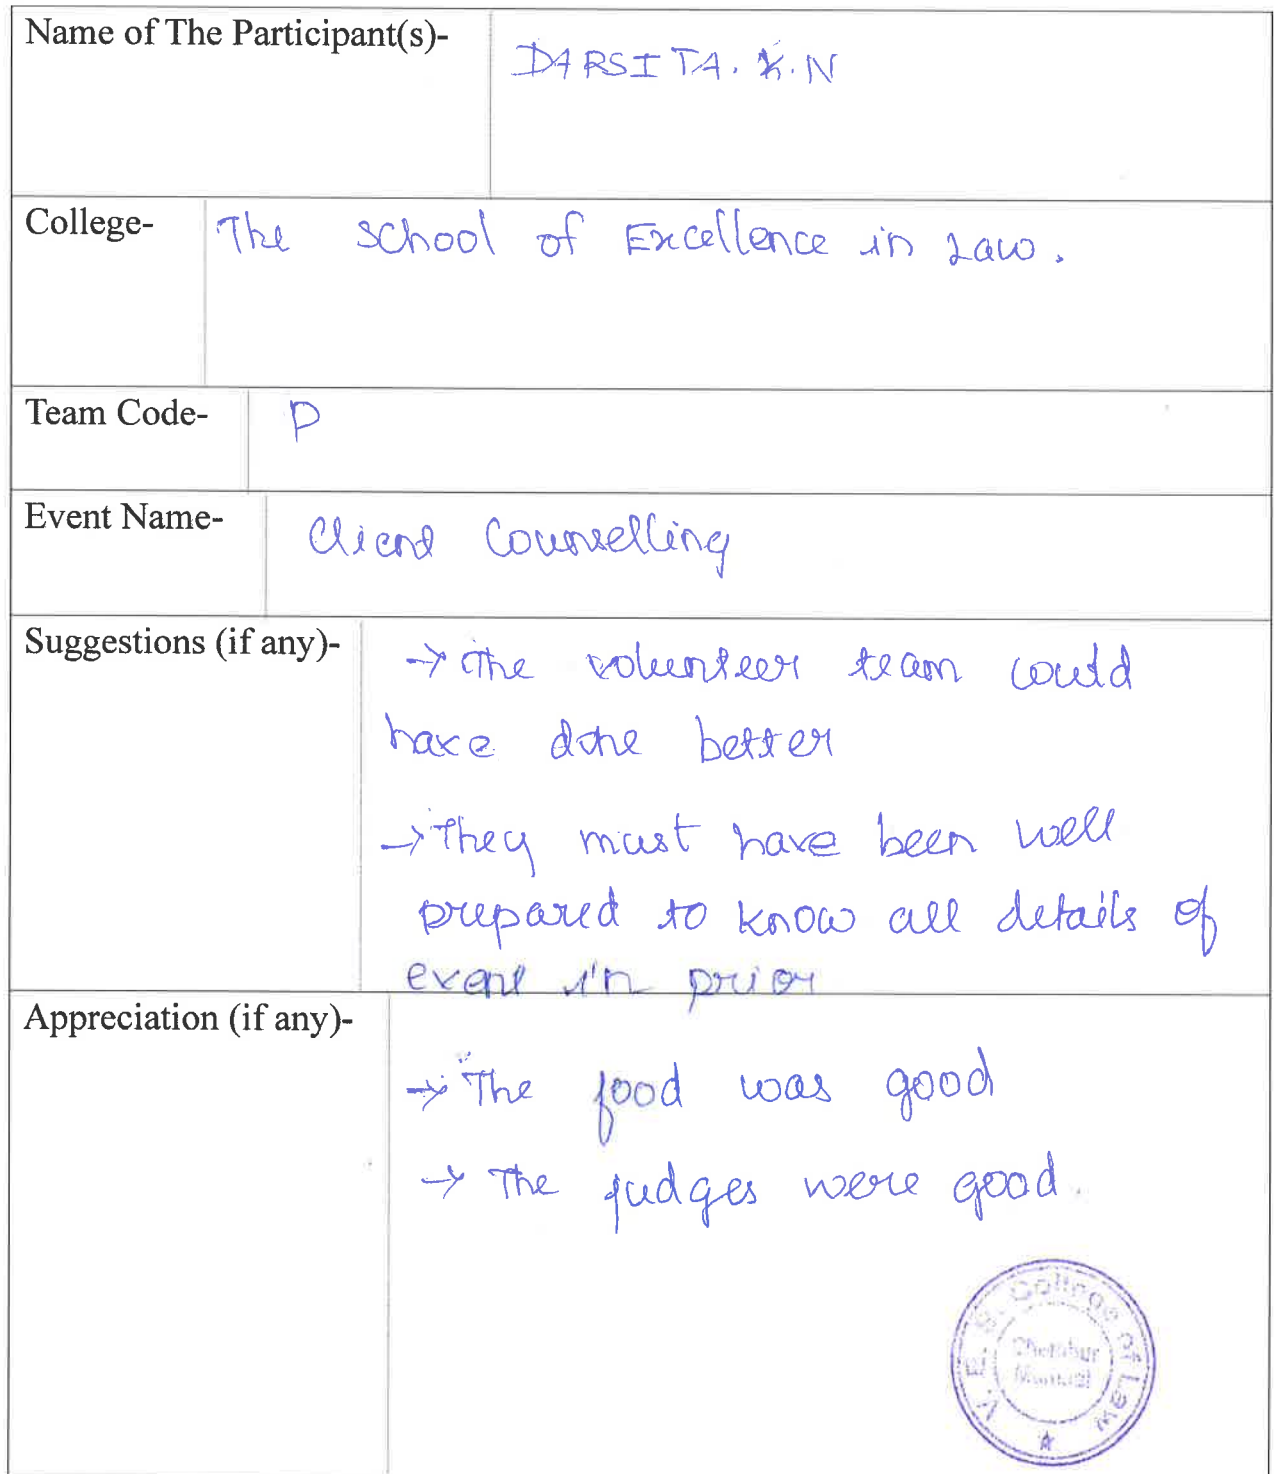 Name of The Participant(s)-
DARSITA. K.N
College-
The school of Excellence in Law.
Team Code-
P
Event Name-
Client Counselling
Suggestions (if any)-
→ The volunteer team could
have done better
→ They must have been well
prepared to know all details of
event in prior
Appreciation (if any)-
→ The food was good
→ The judges were good.
V. E. S. College of Law
Chembur
Mumbai